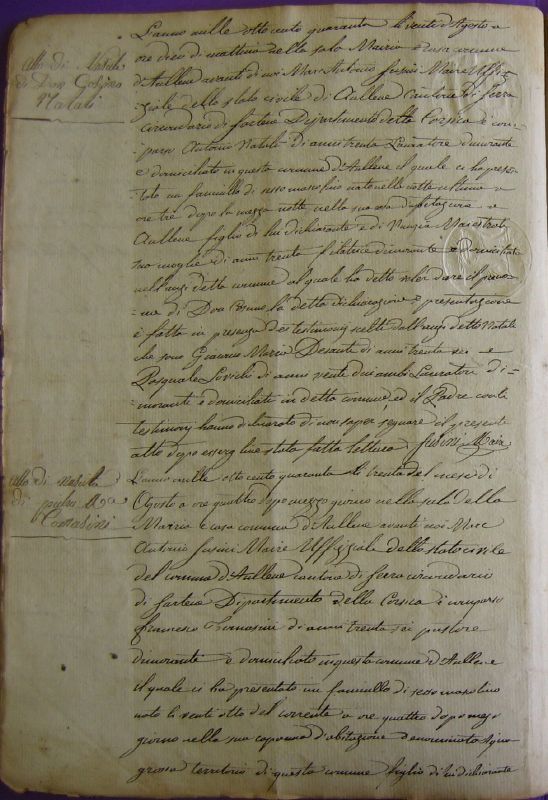 L'anno mille otto cento quaranta li venti d'Agosto a
ore dieci di mattino nella sala Mairia e casa comune
d'Aullene avanti di noi Marc Antonio Susini Maire Uffiz
ziale dello stato civile di Aullene Cantone di Serra
circondario di Sartene Dipartimento della Corsica è com-
parso Antonio Natali di anni trenta Lauratore dimorante
e domiciliato in questo comune d'Aullene il quale ci ha presen
tato un fanciullo di sesso maschio nato nella notte ultima a
ore tre dopo la mezza notte nella sua casa d'abitazione a
Aullene figlio di lui dichiarante e di Nunzia Maestrati
sua moglie di anni trenta filatrice dimorante e domiciliata
nell'anzi detto comune al quale ha detto voler dare il prono
me di Don Cosimo la detta dichiarazione e presentazione
è fatta in presenza de testimonj scelti dall'anzi detto Natali
che sono Giacomo Maria Desanti di anni trenta sei e
Pasquale Lovichi di anni venti due ambi Lauratori di=
moranti e domiciliati in detto comune ed il Padre con li
testimonj hanno dichiarato di non saper segnare il presente
atto dopo essergliene stata fatta lettura Susini Maire
Atto di Natali
di Don Cosimo
Natali
L'anno mille otto cento quaranta li trenta del mese di
Agosto a ore quattro dopo mezzo giorno nella sala della
Mairia e casa comune di Aullene avanti noi Marc
Antonio Susini Maire Uffizziale dello stato civile
del comune d'Aullene cantone di Serra circondario
di Sartene Dipartimento della Corsica è comparso
Francesco Tomasini di anni trenta sei pastore
dimorante e domiciliato in questo comune d'Aullene
il quale ci ha presentato un fanciullo di sesso mascolino
nato li venti otto del corrente a ore quattro dopo mezo
giorno nella sua capanna d'abitazione denominata Aqua
grossa territorio di questo comune figlio di lui dichiarante
Atto di nascita
di
Tomasini